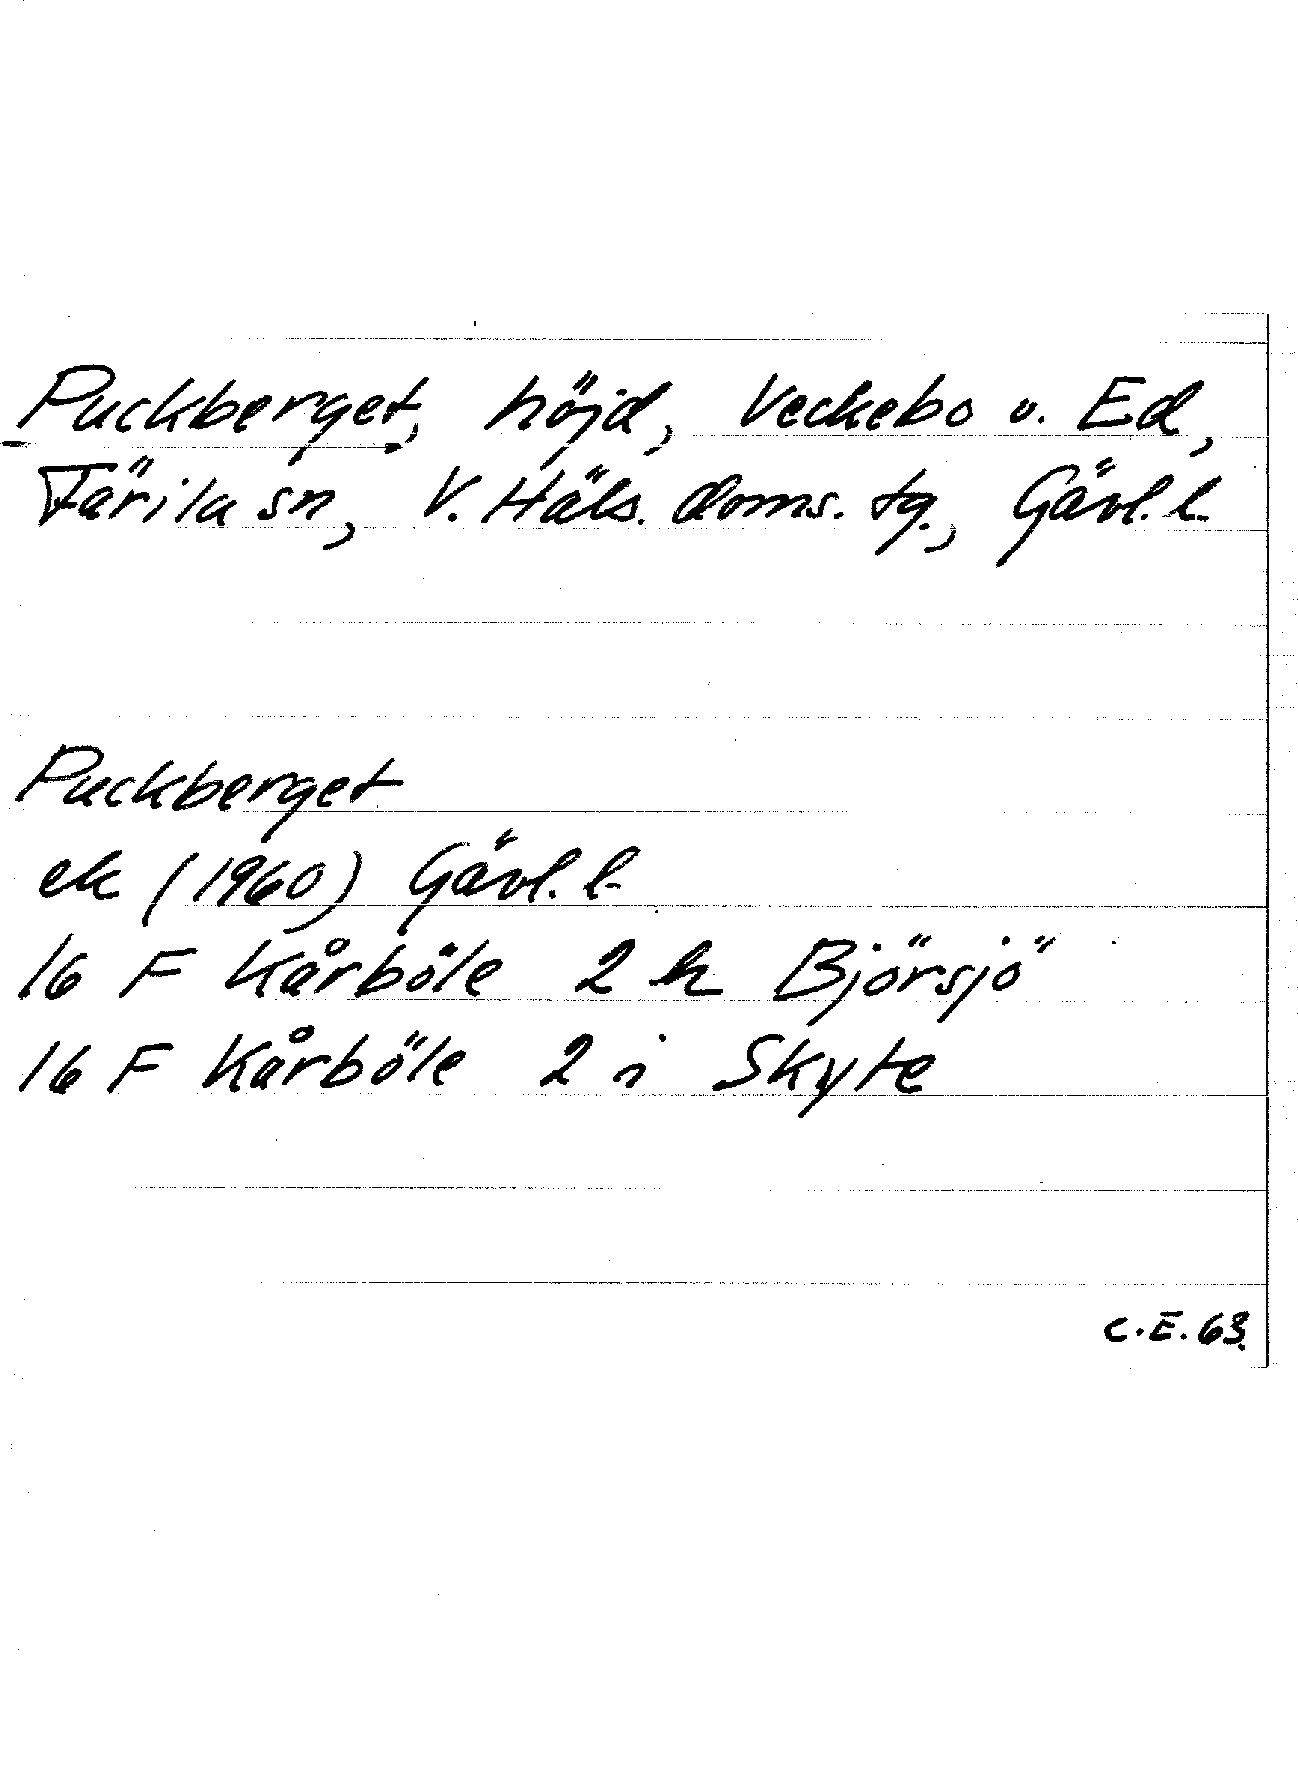 Puckberget, höjd, Veckebo o. Ed,
Färila sn, V. Häls. doms. tg., Gävl. l.
Puckberget
ek (1960) Gävl. l.
16 F Kårböle 2 h Björsjö
16 F Kårböle 2 i Skyte
C.E. 63.